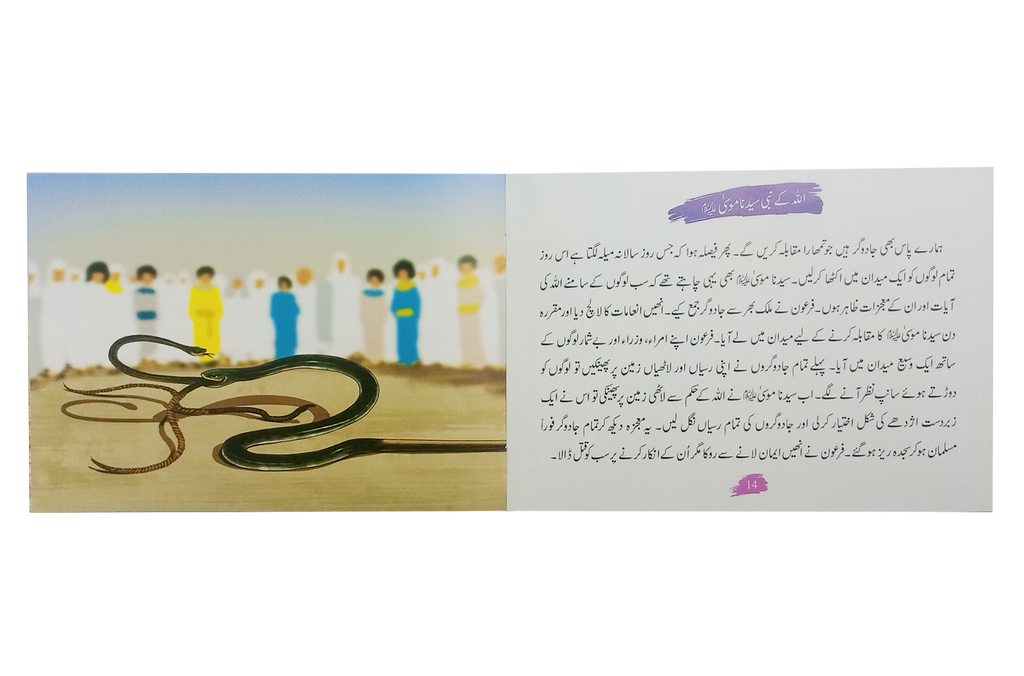 اللہ کے نبی سیدنا موسیٰ علیہ السلام
ہمارے پاس بھی جادوگر ہیں جو تمھارا مقابلہ کریں گے۔ پھر فیصلہ ہوا کہ جس روز سالانہ میلہ لگتا ہے اس روز
تمام لوگوں کو ایک میدان میں اکٹھا کرلیں۔ سیدنا موسیٰ علیہ السلام بھی یہی چاہتے تھے کہ سب لوگوں کے سامنے اللہ کی
آیات اور ان کے معجزات ظاہر ہوں۔ فرعون نے ملک بھر سے جادوگر جمع کیے۔ انھیں انعامات کا لالچ دیا اور مقررہ
دن سیدنا موسیٰ علیہ السلام کا مقابلہ کرنے کے لیے میدان میں لے آیا۔ فرعون اپنے امراء، وزراء اور بے شمار لوگوں کے
ساتھ ایک وسیع میدان میں آیا۔ پہلے تمام جادوگروں نے اپنی رسیاں اور لاٹھیاں زمین پر پھینکیں تو لوگوں کو
دوڑتے ہوئے سانپ نظر آنے لگے۔ اب سیدنا موسیٰ علیہ السلام نے اللہ کے حکم سے لاٹھی زمین پر پھینکی تو اس نے ایک
زبردست اژدھے کی شکل اختیار کرلی اور جادوگروں کی تمام رسیاں نگل لیں۔ یہ معجزہ دیکھ کر تمام جادوگر فوراً
مسلمان ہو کر سجدہ ریز ہو گئے۔ فرعون نے انھیں ایمان لانے سے روکا مگر اُن کے انکار کرنے پر سب کو قتل کر ڈالا۔
14